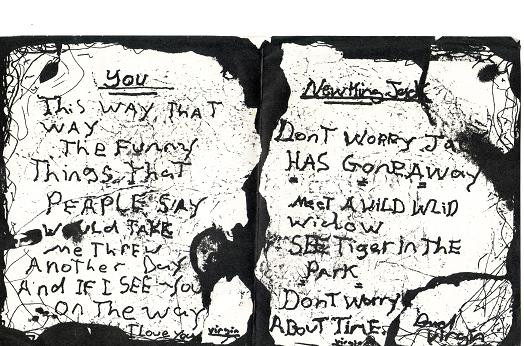 You
This WAY, THAT
WAY
The Funny
Things THAT
PEAPLE SAY
WOULD TAKE
me THREW
Another Day
And IF I SEE YOU
on The way
I love you
virgin
New King Jack
Dont Worry Jac
HAS Gone Away
Meet A WILD WLID
Widow
SEE Tiger In THE
Park
Dont Worry
ABOUT TIME
virgin
Virgin